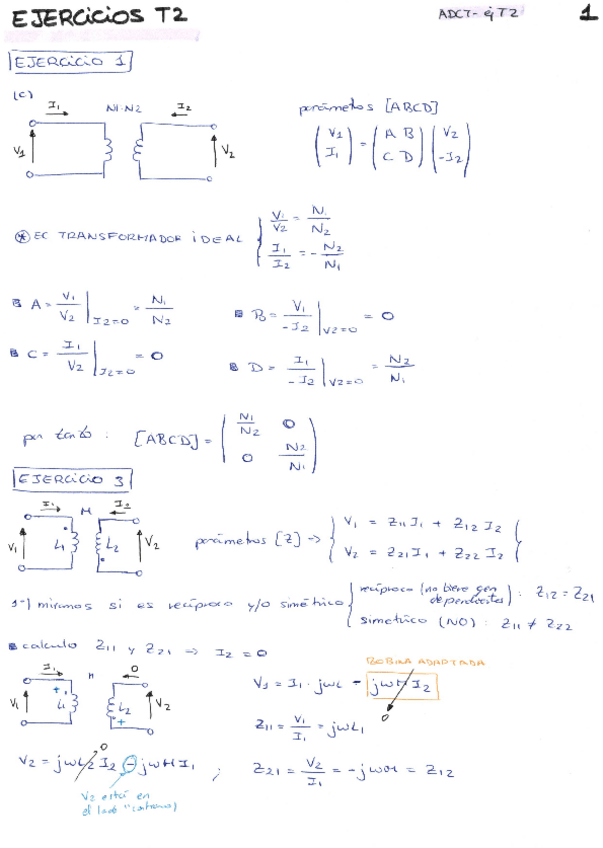 EJERCICIOS T2
ADCT- ej T2
1
EJERCICIO 1
(c)
I1 N1:N2 I2
V1 V2
parámetros [ABCD]
(V1 I1) = (A B C D) (V2 -I2)
* EC TRANSFORMADOR IDEAL { V1/V2 = N1/N2
I1/I2 = - N2/N1
A = V1/V2 | I2=0 = N1/N2
B = V1/-I2 | V2=0 = 0
C = I1/V2 | I2=0 = 0
D = I1/-I2 | V2=0 = N2/N1
por tanto : [ABCD] = (N1/N2 0 0 N2/N1)
EJERCICIO 3
I1 M I2
V1 L1 L2 V2
parámetros [Z] → { V1 = Z11 I1 + Z12 I2
V2 = Z21 I1 + Z22 I2 }
1-) miramos si es recíproco y/o simétrico { recíproco (no tiene gen dependientes) : Z12 = Z21
simetrico (NO) : Z11 ≠ Z22
calculo Z11 y Z21 → I2 = 0
BOBINA ADAPTADA
I1 M 0
V1 + L1 L2 + V2
V1 = I1 · jωL - jωM I2
0
Z11 = V1/I1 = jωL1
0
V2 = jωL2 I2 - jωM I1 ;
Z21 = V2/I1 = -jωM = Z12
V2 está en
el lado "contrario)